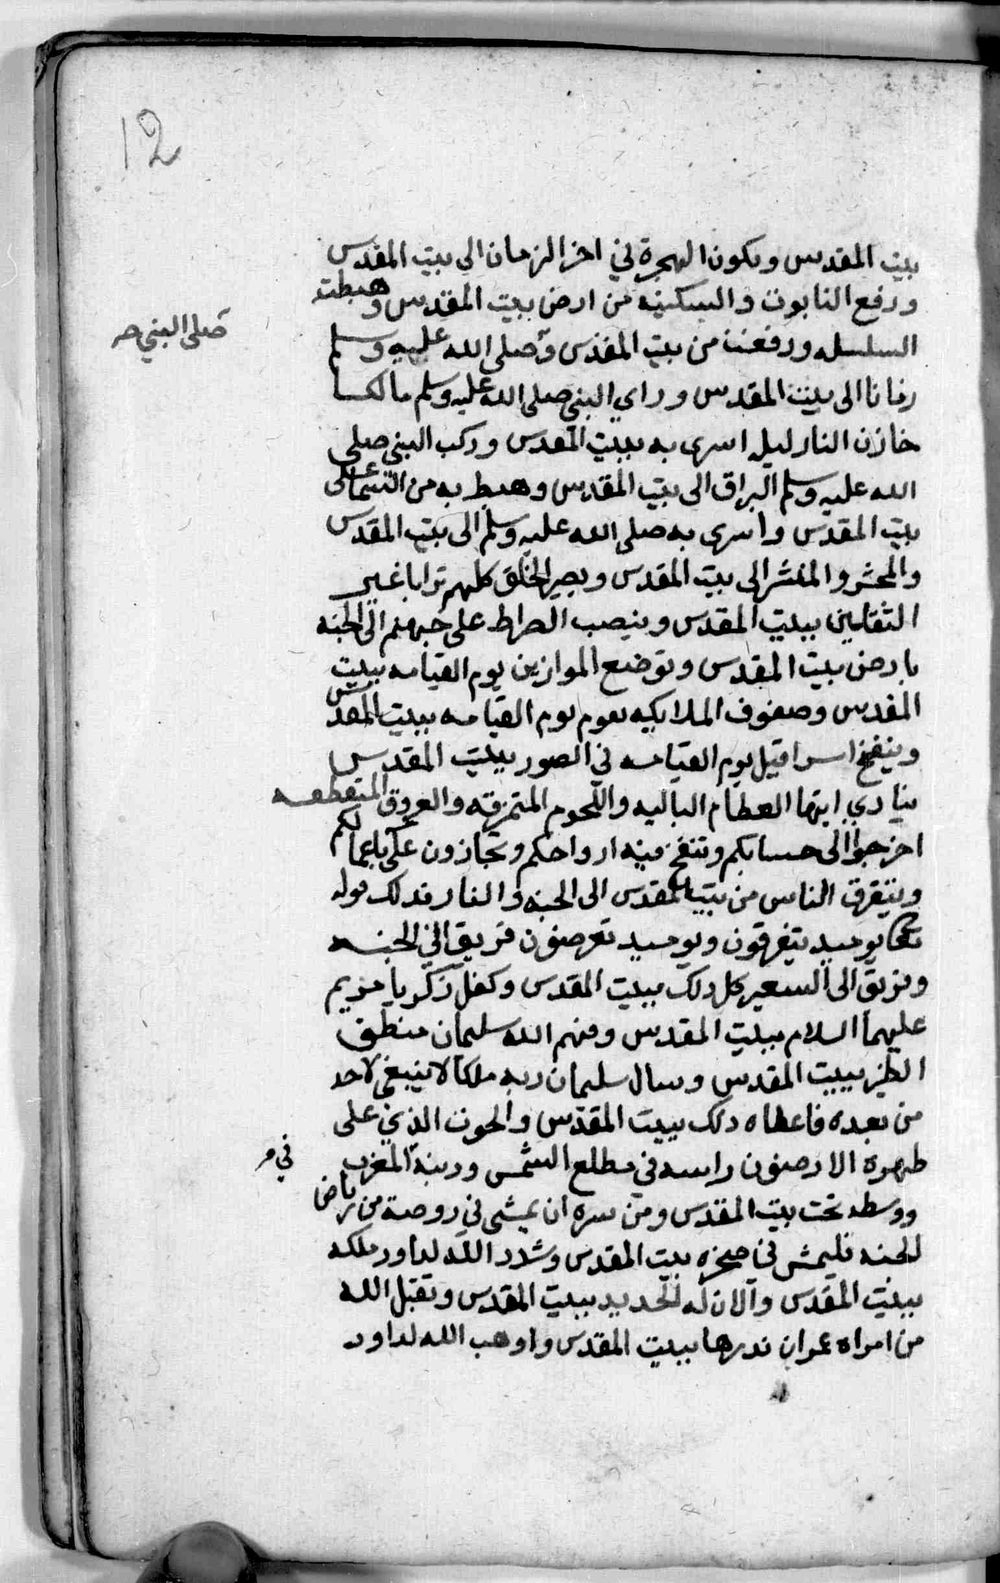 12
بيت المقدس ويكون الهجرة في اخر الزمان الى بيت المقدس
ورفع التابوت والسكينه من ارض بيت المقدس وهبطت
السلسله ورفعت من بيت المقدس وصلى الله عليه وسلم
صلى النبي صـ
زمانا الى بيت المقدس وراي النبي صلى الله عليه وسلم مالكا
خازن النار ليله اسرى به ببيت المقدس وركب النبي صلى
الله عليه وسلم البراق الى بيت المقدس وهبط به من السما الى
بيت المقدس واسرى به صلى الله عليه وسلم الى بيت المقدس
والمحشر والمنشر الى بيت المقدس ويصير الخلق كلهم ترابا غير
الثقلين ببيت المقدس وينصب الصراط على جهنم الى الجنه
بارض بيت المقدس وتوضع الموازين يوم القيامه ببيت
المقدس وصفوف الملايكه تقوم يوم القيامه ببيت المقدس
وينفخ اسرافيل يوم القيامه في الصور ببيت المقدس
ينادي ايتها العظام الباليه واللحوم المتمزقه والعروق المتقطعه
اخرجوا الى حسابكم وتنفخ فيه ارواحكم وتجازون على باعمالكم
ويتفرق الناس من بيت المقدس الى الجنه والنار فذلك قوله
تعالى يوميد يتفرقون ويوميد تعرضون فريق في الجنه
وفريق الى السعير كل ذلك ببيت المقدس وكفل زكريا مريم
عليهما السلام ببيت المقدس وفهم الله سليمان منطق
الطير ببيت المقدس وسال سليمان ربه ملكا لا ينبغي لاحد
من بعده فاعطاه ذلك ببيت المقدس والحوت الذي على
ظهره الارضون راسه في مطلع الشمس وذنبه المغرب
في م
ووسطه تحت بيت المقدس ومن سره ان يمشي في روضة من رياض
الجنه فليمش في صخره بيت المقدس وشدد الله لداود ملكه
ببيت المقدس وآلان له الحديد ببيت المقدس وتقبل الله
من امراه عمران نذرها ببيت المقدس واوهب الله لداود